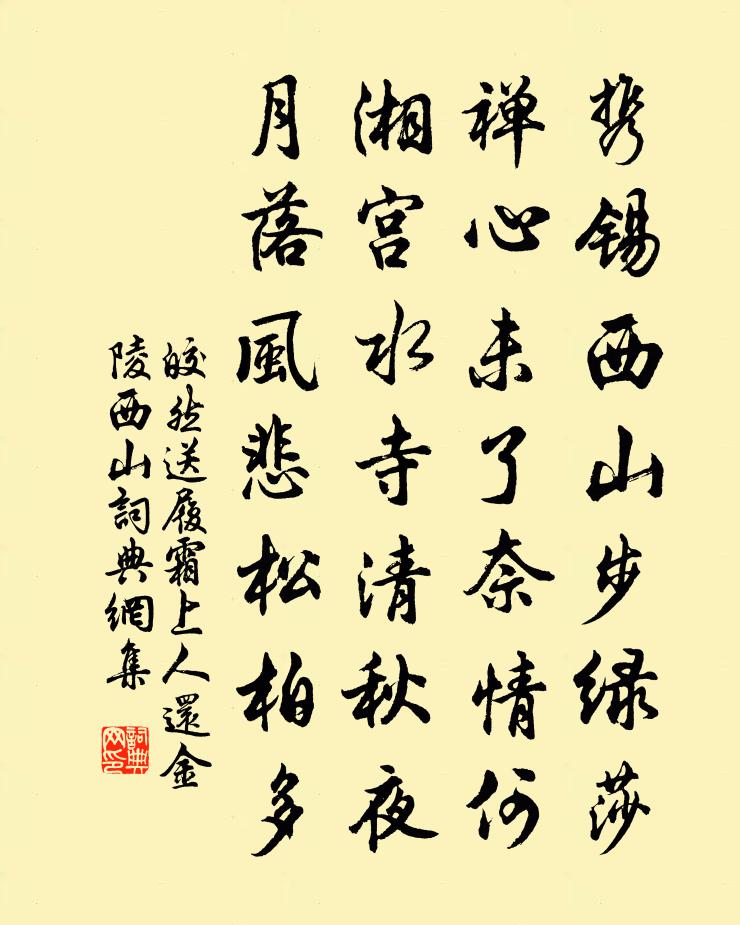 携锡西山步绿莎
禅心未了奈情何
湘宫水寺清秋夜
月落風悲松柏多
皎然送履霜上人還金
陵西山詞典網集
詞典
网印